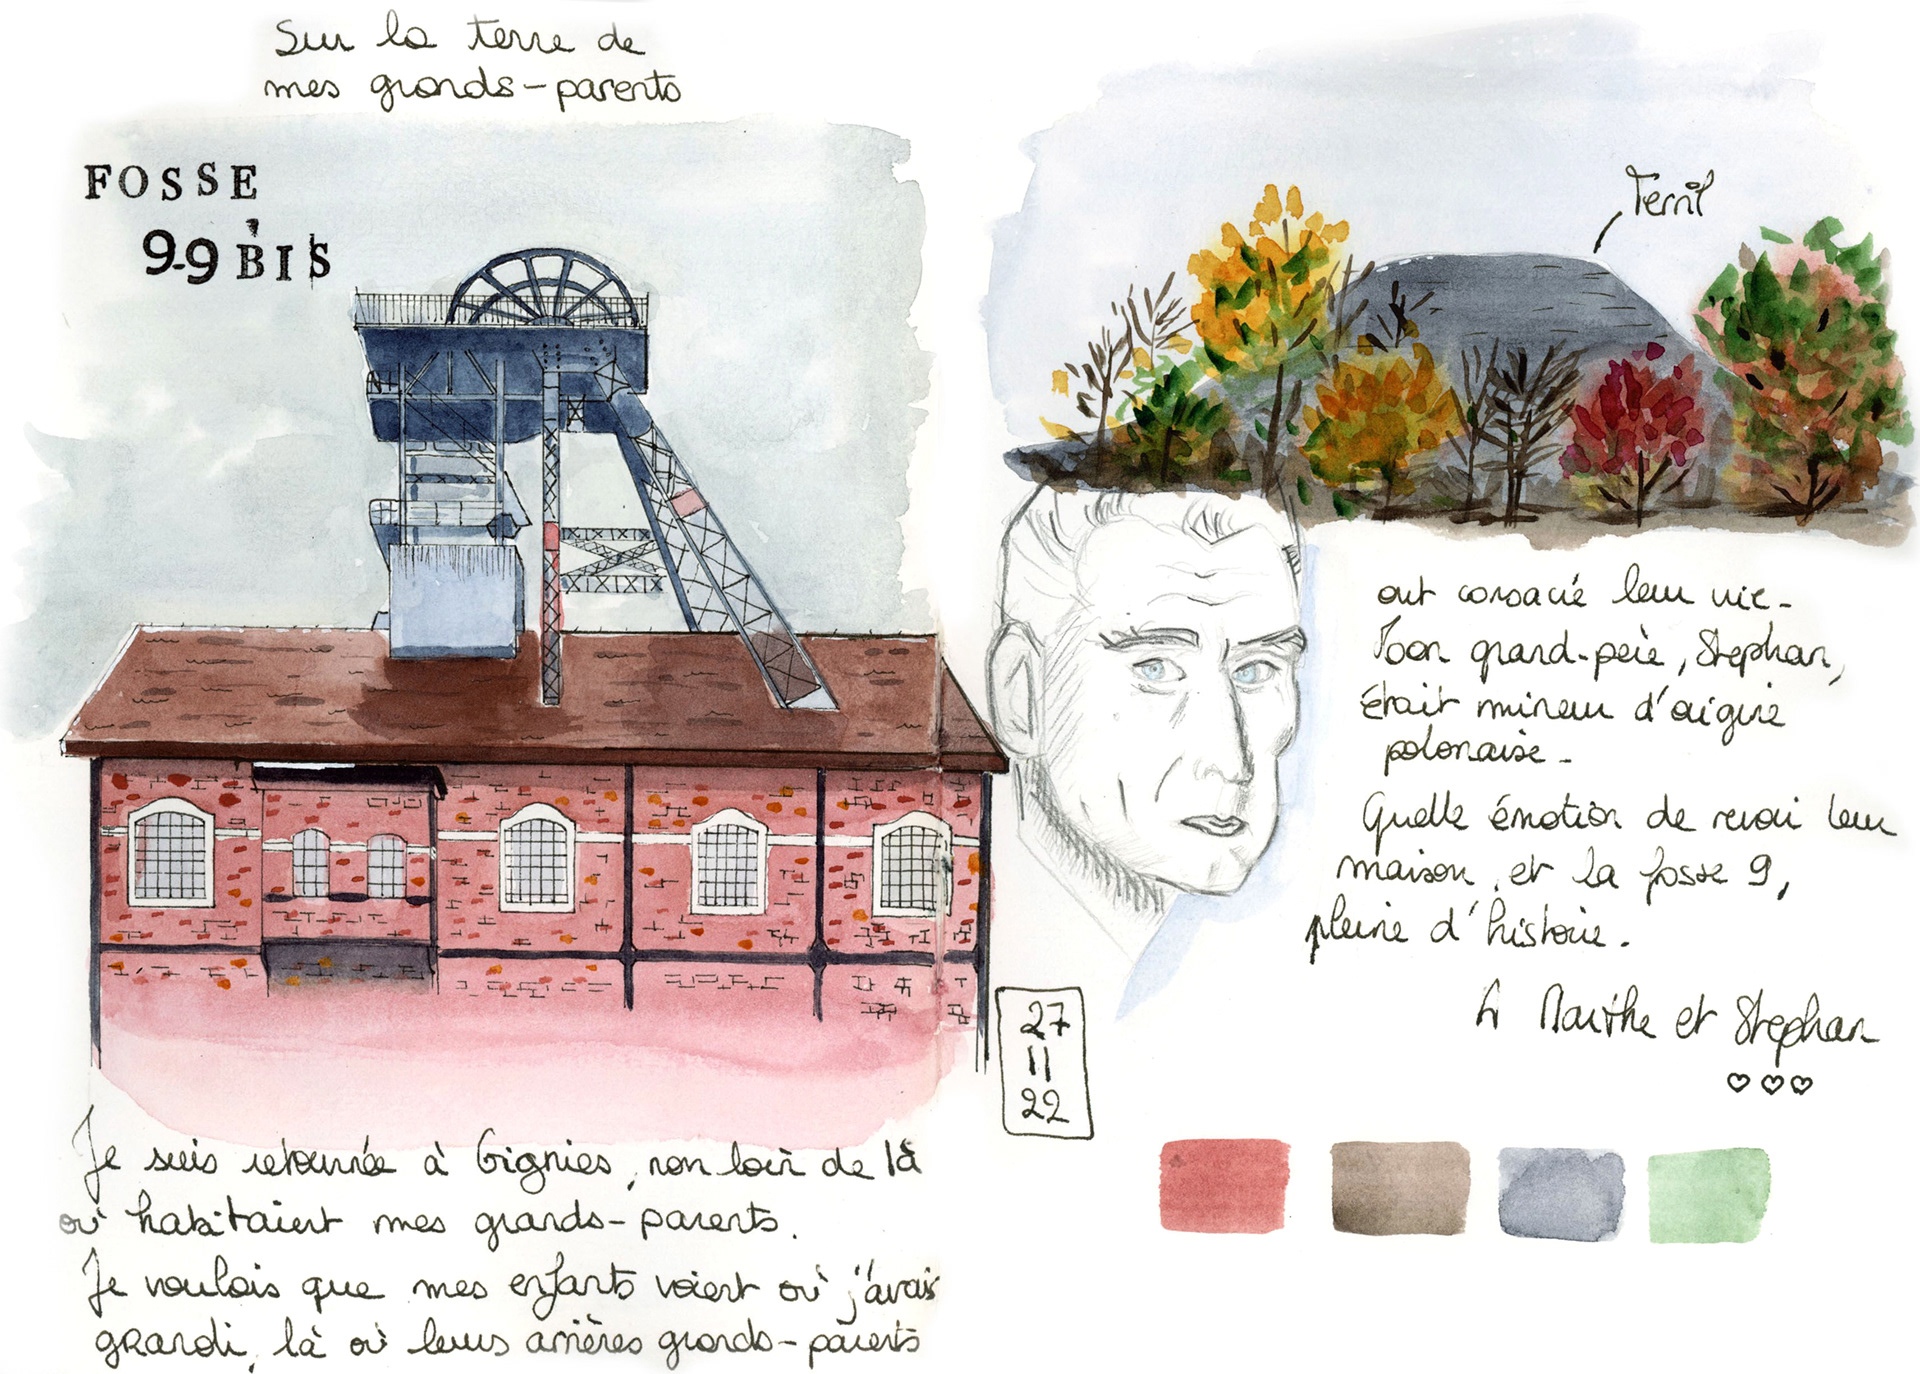 Sur la terre de
mes grands-parents
FOSSE
9-9 BIS
Je suis retournée à Oignies, non loin de là
où habitaient mes grands-parents.
Je voulais que mes enfants voient où j'avais
grandi, là où leurs arrières grands-parents
27
11
22
Terril
ont consacré leur vie.
Mon grand-père, Stephan,
était mineur d'origine
polonaise.
Quelle émotion de revoir leur
maison, et la fosse 9,
pleine d'histoire.
A Marthe et Stephan
♡♡♡